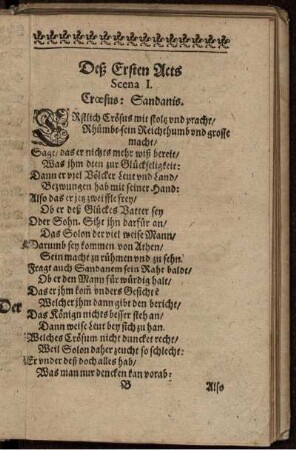 Deß Ersten Acts
Scena I.
Crœsus: Sandanis.
ERstlich Crösus mit stoltz vnd pracht/
Rhümbt sein Reichthumb vnd grosse
macht/
Sagt/ das er nichts mehr wiß bereit/
Was ihm dien zur Glückseligkeit:
Dann er viel Völcker Leut vnd Land/
Bezwungen hab mit seiner Hand:
Also das er jetz zweiffle frey/
Ob er deß Glückes Vatter sey
Oder Sohn. Siht ihn darfür an/
Das Solon der viel weise Mann/
Darumb sey kommen von Athen/
Sein macht zu rühmen vnd zu sehn.
Fragt auch Sandanem sein Raht baldt/
Ob er den Mann für würdig halt/
Das er ihm kom̃ vnders Gesicht?
Welcher ihm dann gibt den bericht/
Das Könign nichts besser steh an/
Dann weise Leut bey sich zu han.
Welches Crösum nicht duncket recht/
Weil Solon daher zeucht so schlecht:
Er vnder deß doch alles hab/
Was man nur dencken kan vorab:
B Also
Der